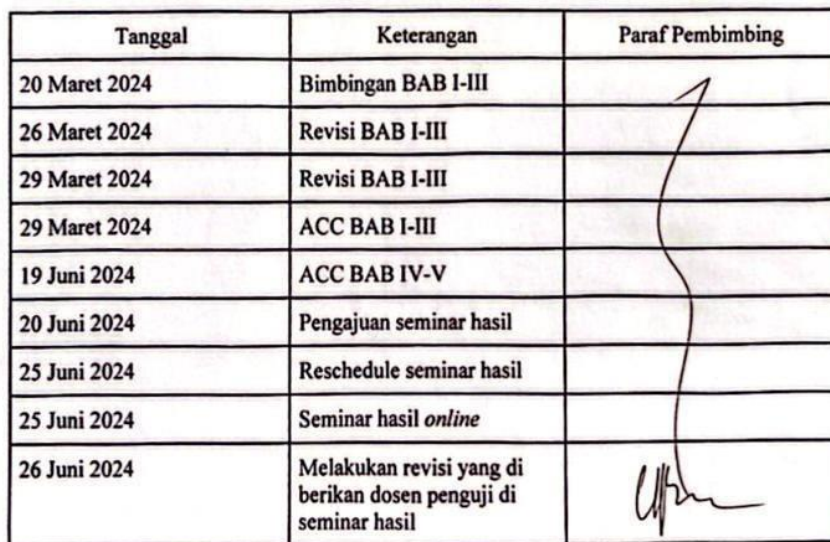 Tanggal Keterangan Paraf Pembimbing
20 Maret 2024 Bimbingan BAB I-III
26 Maret 2024 Revisi BAB I-III
29 Maret 2024 Revisi BAB I-III
29 Maret 2024 ACC BAB I-III
19 Juni 2024 ACC BAB IV-V
20 Juni 2024 Pengajuan seminar hasil
25 Juni 2024 Reschedule seminar hasil
25 Juni 2024 Seminar hasil online
26 Juni 2024 Melakukan revisi yang di
berikan dosen penguji di
seminar hasil